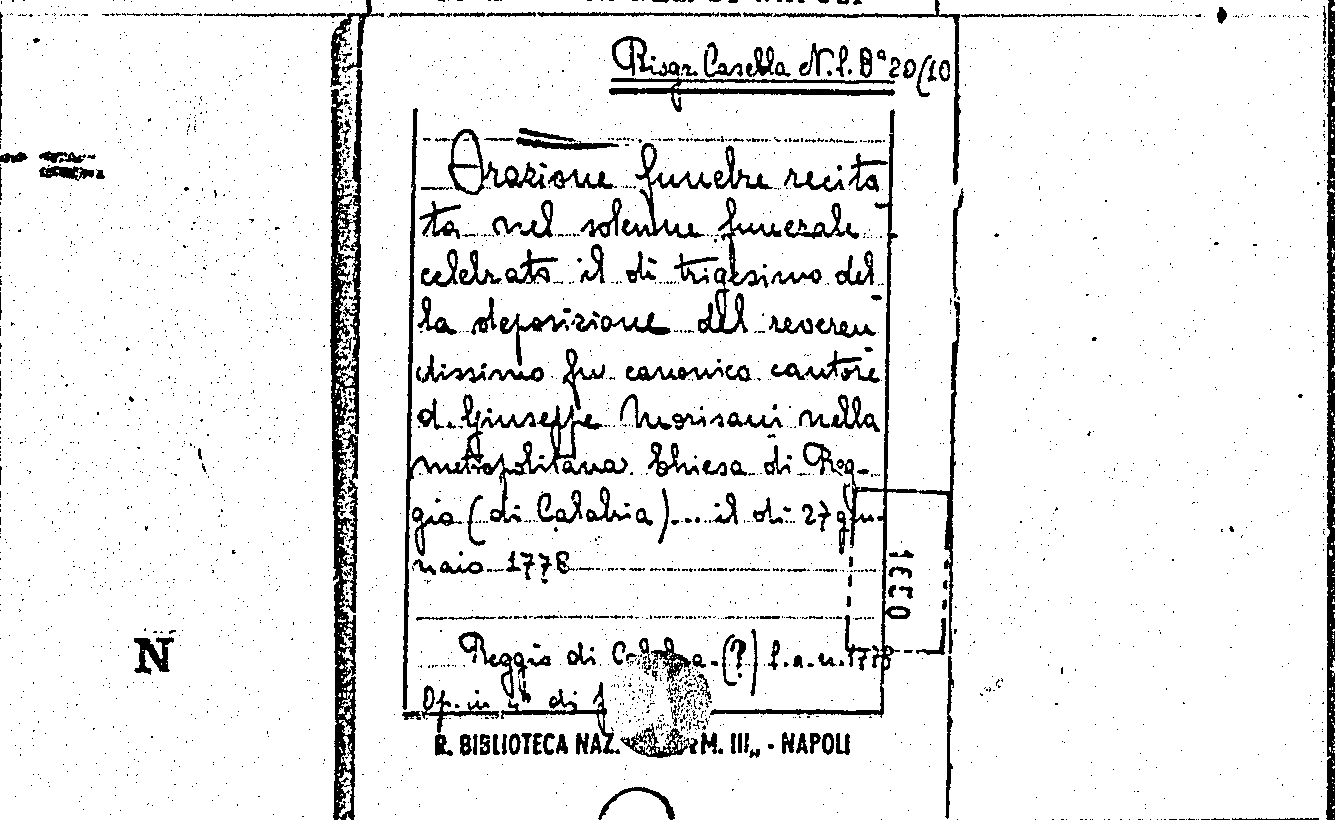 Risgr. Casella N. f. 8° 20(10
Orazione funebre recita
ta nel solenne funerale
celebrato il di trigesimo del
la deposizione del reveren
dissimo fu canonico cantore
d. Giuseppe Morisani nella
metropolitana Chiesa di Reg-
gio (di Calabria)... il di 27 gen-
naio 1778
1330
N
Reggio di (?) s.a.n. 1778
Op. in 4° di
R. BIBLIOTECA NAZ. III„ - NAPOLI